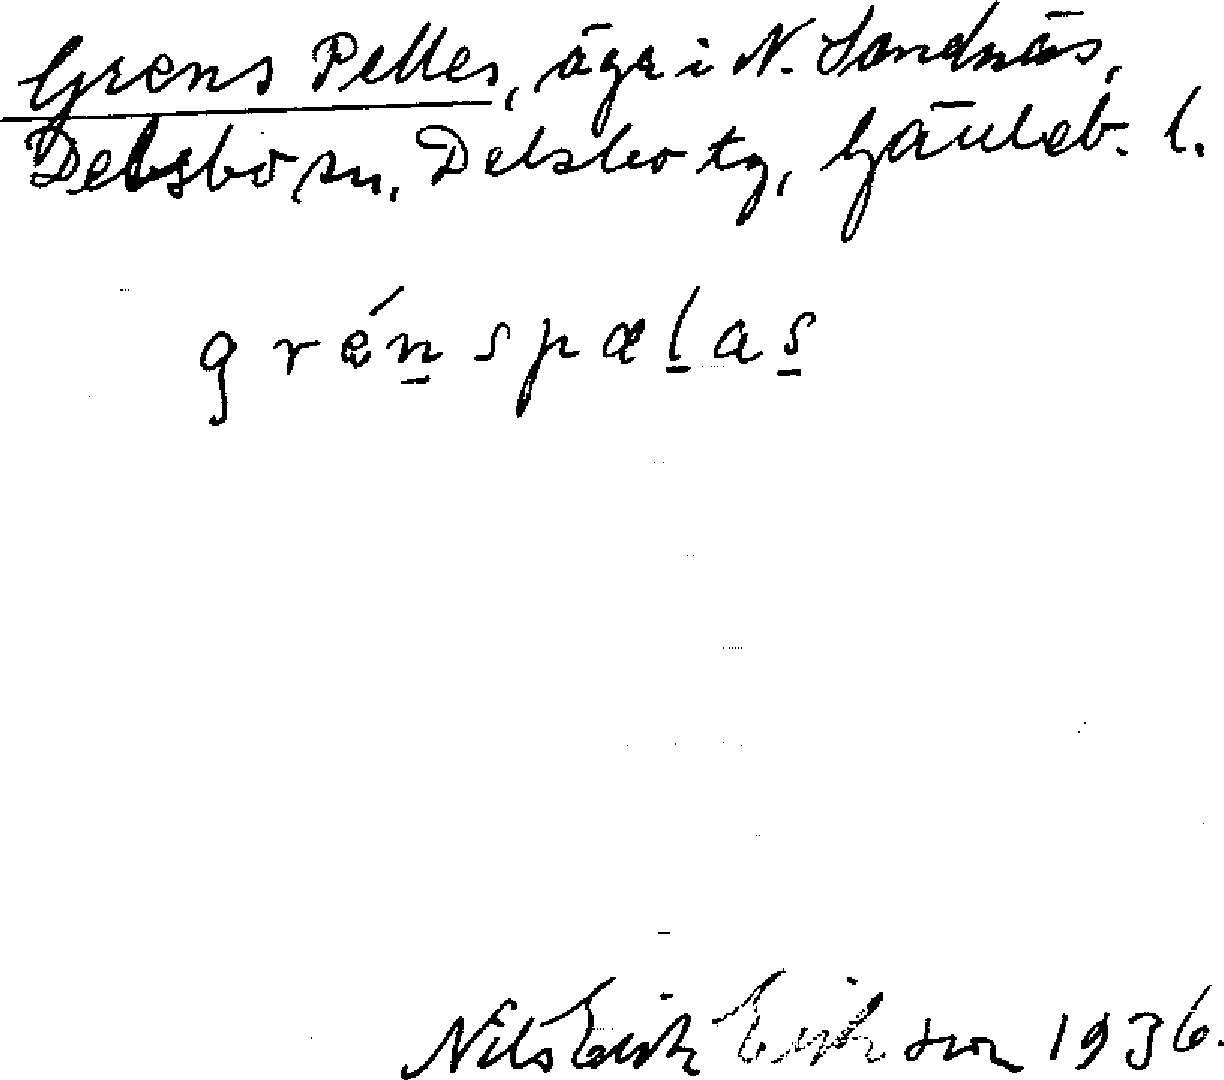 Grens Pelles, äga i N. Sandnäs,
Delsbo sn, Delsbo tg, Gävleb. l.
grénspælas
Nils Erik Erikson 1936.